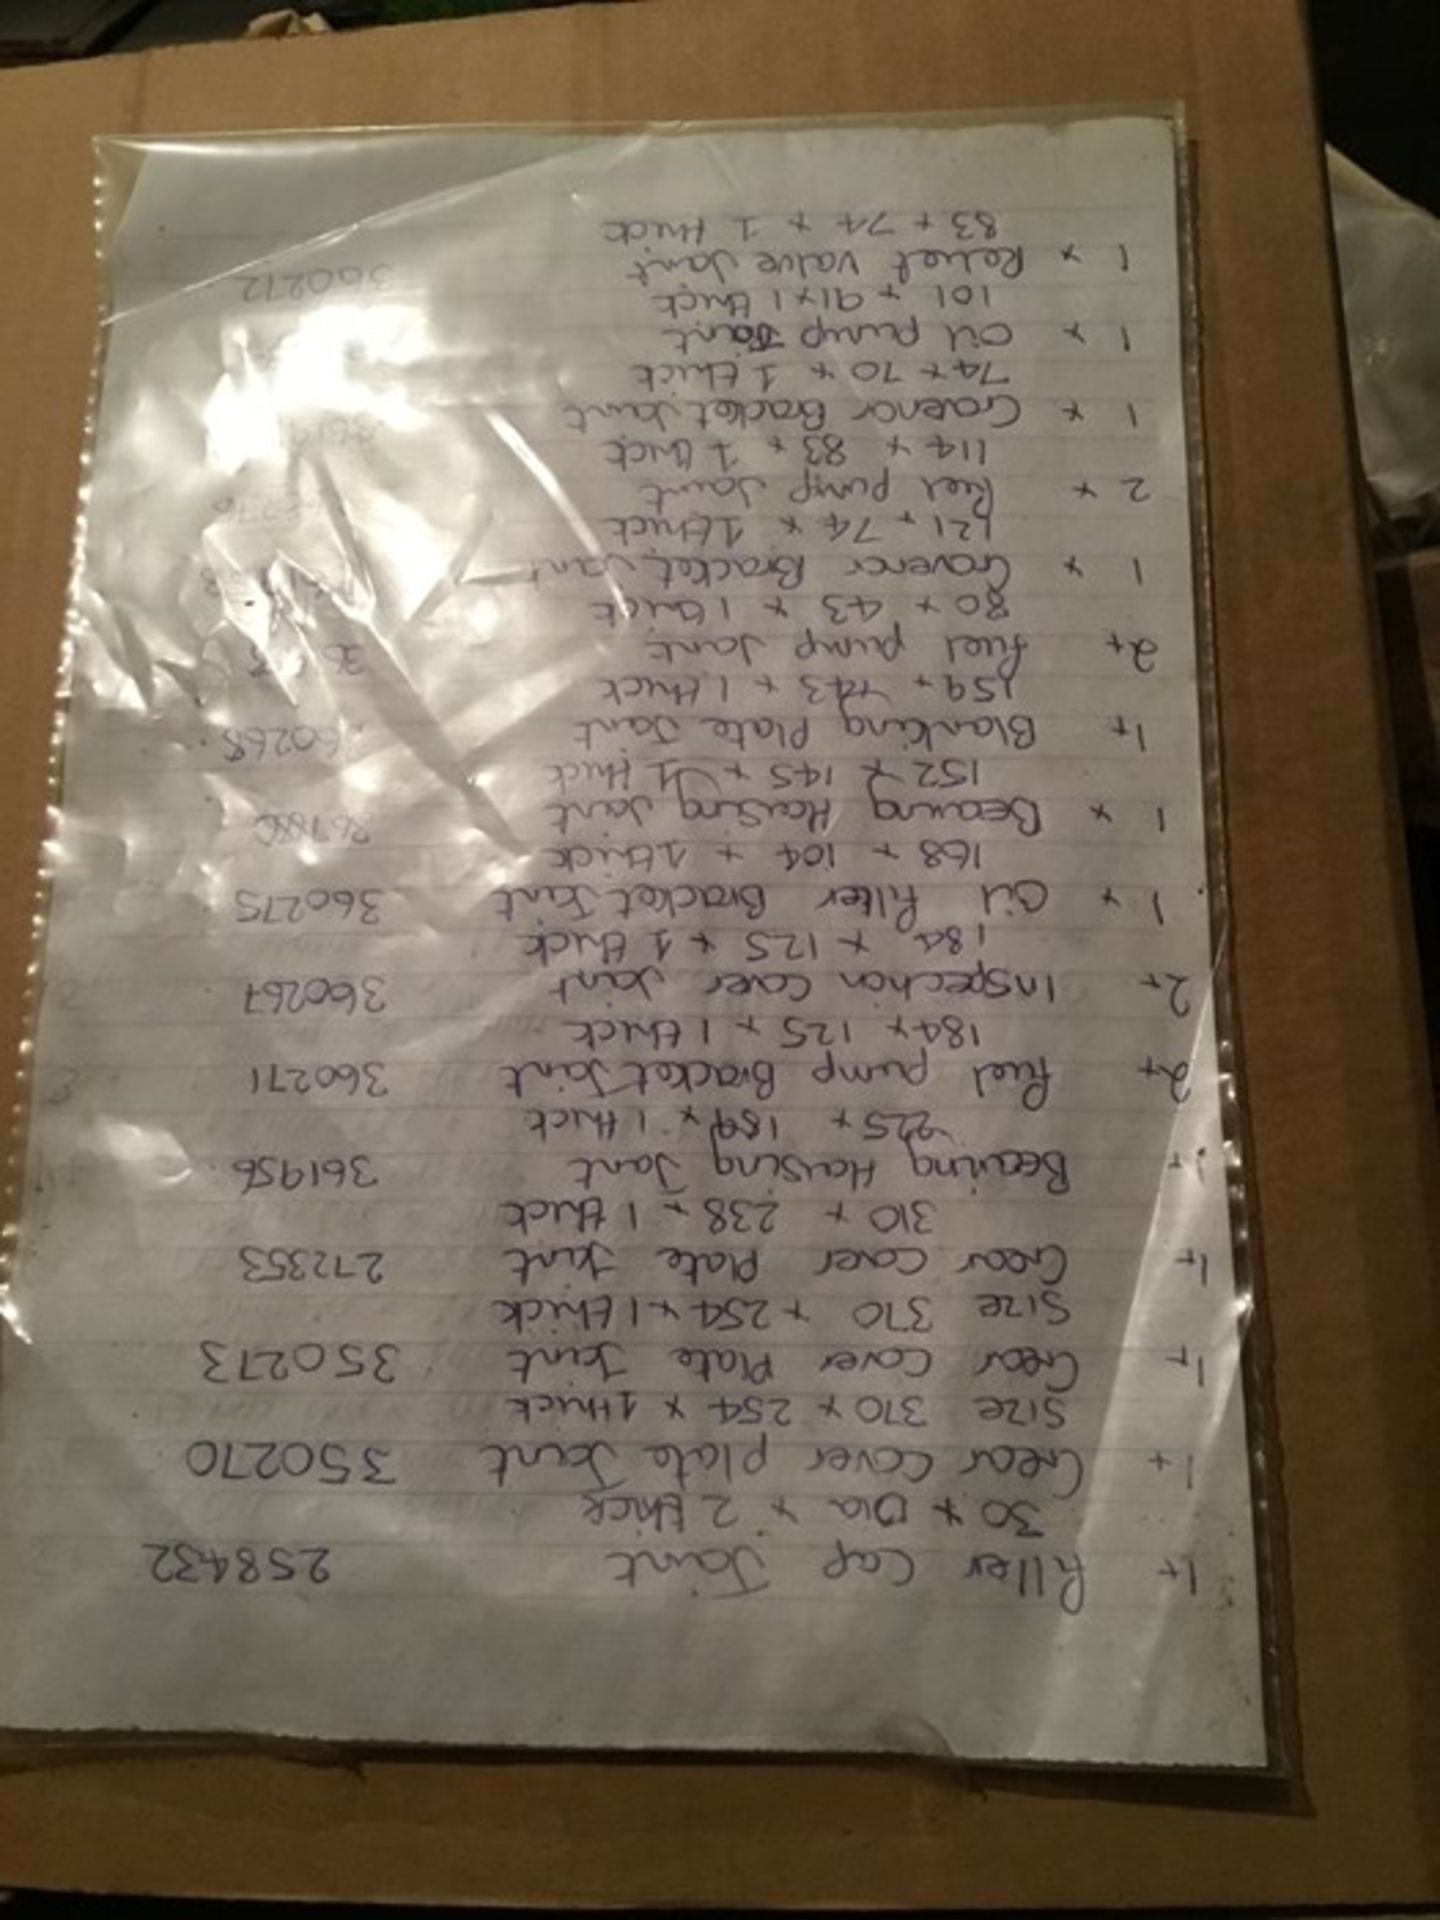 1x Filler Cap Joint 258432
30 x Dia x 2 thick
1x Gear Cover plate Joint 350270
Size 370 x 254 x 1 thick
1x Gear Cover Plate Joint 350273
Size 370 x 254 x 1 thick
1x Gear Cover Plate Joint 272353
310 x 238 x 1 thick
Bearing Housing Joint 361956
225 x 189 x 1 thick
2x Fuel pump Bracket Joint 360271
184 x 125 x 1 thick
2x Inspection Cover Joint 360267
184 x 125 x 1 thick
1 x Oil Filter Bracket Joint 360275
168 x 104 x 1 thick
1 x Bearing Housing Joint
152 x 145 x 1 thick
1x Blanking Plate Joint 360268
159 x 43 x 1 thick
2x Fuel pump Joint
80 x 43 x 1 thick
1 x Govenor Bracket Joint
121 x 74 x 1 thick
2 x Fuel pump Joint
114 x 83 x 1 thick
1 x Govenor Bracket Joint
74 x 70 x 1 thick
1 x Oil pump Joint
101 x 91 x 1 thick
1 x Relief Valve Joint 360272
83 x 74 x 1 thick